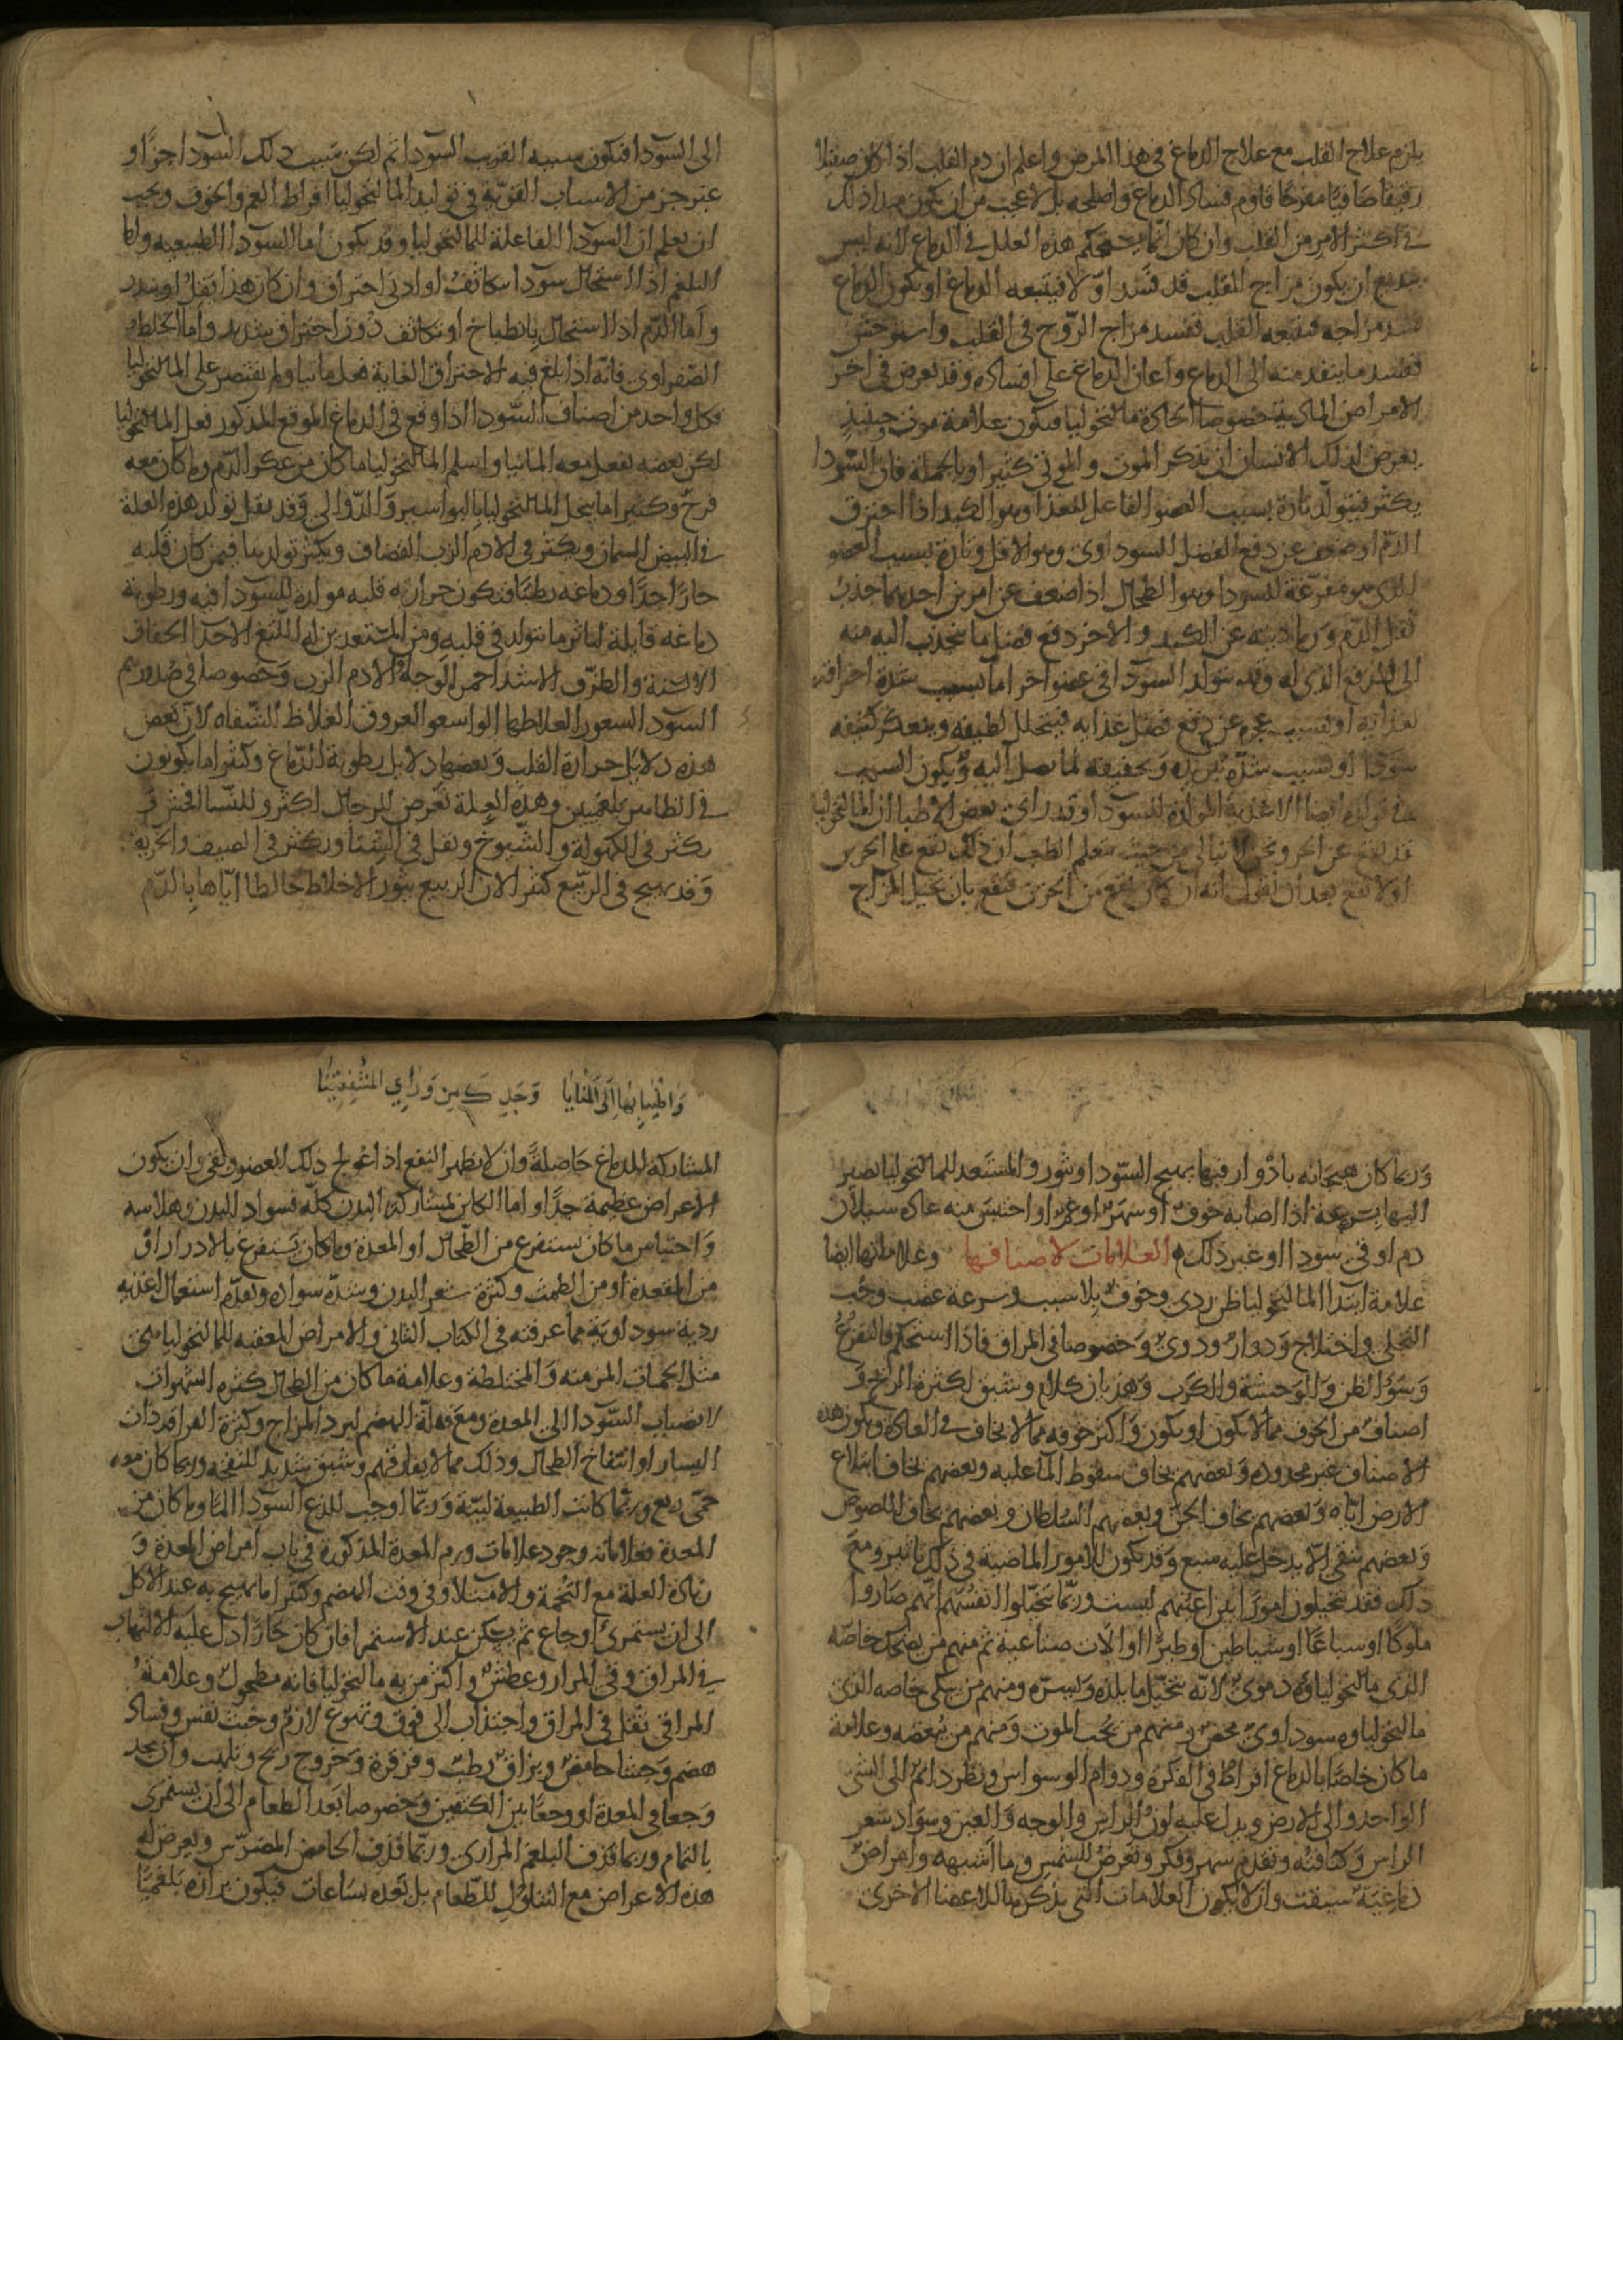 يلزم علاج القلب مع علاج الدماغ في هذا المرض واعلم ان دم القلب اذا كان صقيلا
رقيقا صافيا مفرحا قاوم فساد الدماغ واصلحه بل لا عجب من ان يكون مبدا ذلك
في اكثر الامر من القلب وان كان انما يستحكم هذه العلل في الدماغ لانه ليس
ببديع ان يكون مزاج القلب قد فسد اوّلا فيتبعه الدماغ او يكون الدماغ
فسد مزاجه فيتبعه القلب ففسد مزاج الرّوح في القلب واستوحش
ففسد ما ينفذ منه الى الدماغ واعان الدماغ على افساده وقد يعرض في اخر
الامراض المادية خصوصا الحادة مالنخوليا فيكون علامة موت وحينيذ
يعرض لذلك الانسان ان يتذكر الموت والموتى كثيرا وبالجملة فان السّودا
يكثر فيتولّد تارة بسبب العضو الفاعل للغذا وهو الكبد اذا احترق
الدّم او ضعف عن دفع الفضل السوداوى وهو الاقل وتارة بسبب العضو
الذى هو مفرغة للسودا وهو الطحال اذا ضعف عن امرين احدهما جذب
ثفل الدّم ورماديته عن الكبد والاخر دفع فضل ما ينجذب اليه منه
الى المدفع الذى له وقد يتولد السودا في عضو اخر اما بسبب شدة احراقه
لغذايه او بسبب عجزه عن دفع فضل غذايه فيتحلل لطيفه ويتعكر كثيفه
سودا او بسبب شدّة تبريده وتجفيفه لما يصل اليه ويكون السبب
في تولده ايضا الاغذية المولدة للسودا وقد راى بعض الاطبا ان المالنخوليا
قد يقع عن الجن ونحن لا نبالي من حيث نتعلم الطب ان ذلك يقع على الجن
او لا يقع بعد ان نقول انه ان كان يقع من الجن فيقع بان يحيل المزاج
الى السّودا فيكون سببه القريب السّودا ثم ليكن سبب ذلك السّودا جنّا او
غير جن من الاسباب القويّة في توليد المالنخوليا افراط الغم والخوف ويجب
ان يعلم ان السودا الفاعلة للمالنخوليا وقد يكون اما السودا الطبيعيه واما
البلغم اذا استحال سودا بتكاثف او ادنى احتراق وان كان هذا يقل او يندر
واما الدّم اذا استحال بانطباخ او تكاثف دون احتراق شديد واما الخلط
الصّفراوى فانّه اذا بلغ فيه الاحتراق الغاية فعل مانيا ولم يقتصر على المالنخوليا
فكل واحد من اصناف السّودا اذا وقع في الدماغ الموقع المذكور فعل المالنخوليا
لكن بعضه يفعل معه المانيا واسلم المالنخوليا ما كان من عكر الدّم وما كان معه
فرح وكثيرا ما ينحل المالنخوليا بالبواسير والدّوالى وقد يقل تولد هذه العلة
في البيض السمان ويكثر في الادم الزب القضاف ويكثر تولدها فيمن كان قلبه
حارًّا جدًا ودماغه رطبًا فيكون حرارة قلبه مولدة للسّودا فيه ورطوبة
دماغه قابلة لتاثير ما يتولد في قلبه ومن المستعدين له اللّثغ الاحدا الخفاف
الالسنة والطرّف الاشد احمر الوجه الادم الزب وخصوصا في صدورهم
السّود الشعور الغلاظها الواسعو العروق الغلاظ الشّفاه لان بعض
هذه دلايل حرارة القلب وبعضها دلايل رطوبة الدّماغ وكثيرا ما يكونون
في الظاهر بلغميين وهذه العلة تعرض للرجال اكثر وللنّسا افحش و
يكثر في الكهولة والشّيوخ ويقل في الشتا ويكثر في الصيف والخريف
وقد يهيج في الرّبيع كثيرا لان الربيع يثور الاخلاط خالطا ايّاها بالدّم
واطيب بها الى المنايا وجد ك من وراى المشفقينا
وربما كان هيجانه بادوار فيها يهيج السّودا ويثور والمستعد للمالنخوليا يصير
اليها بسرعة اذا اصابه خوف او سهر او غم او احتبس منه عادة سيلان
دم او قى سودا او غير ذلك العلامات لاصنافها وعلاماتها ايضا
علامة ابتدا المالنخوليا ظن ردى وخوف بلا سبب وسرعة غضب وحب
التخلى واختلاج ودوار ودوى وخصوصا في المراق فاذا استحكم فالتفزع
وسؤ الظن والوحشة والكرب وهذيان كلام وشبق لكثرة الريح و
اصناف من الخوف مما لا يكون او يكون واكثر خوفه مما لا يخاف في العادة ويكون هذه
الاصناف غير محدودة وبعضهم يخاف سقوط السّما عليه وبعضهم يخاف ابتلاع
الارض اياه وبعضهم يخاف الجن وبعضهم السّلطان وبعضهم يخاف اللصوص
وبعضهم يتقى الّا يدخل عليه سبع وقد يكون للامور الماضية في ذلك تاثير ومع
ذلك فقد يتخيلون امورًا بين اعينهم ليست وربّما تخيّلوا انفسهم انّهم صاروا
ملوكا او سباعًا او شياطين او طيرًا او الات صناعية ثم منهم من يضحك خاصّه
الذى مالنخولياه دموى لانّه يتخيّل ما يلذه ويسرّه ومنهم من يبكى خاصه الذى
مالنخولياه سوداوىّ محض ومنهم من يحب الموت ومنهم من يبغضه وعلامة
ما كان خاصّا بالدماغ افراط في الفكرة ودوام الوسواس ونظر دائم الى الشى
الواحد والى الارض ويدل عليه لون الراس والوجه والعين وسواد شعر
الراس وكثافته وتقدم سهر وفكر وتعرض للشمس وما اشبهه وامراض
دماغيّة سبقت وان لا يكون العلامات التى نذكرها للاعضا الاخرى
المشاركة للدماغ حاصلة وان لا يظهر النفع اذا عولج ذلك العضو ونقى وان يكون
الاعراض عظيمة جدّا واما الكاين بمشاركة البدن كلّه فسواد البدن وهلاسه
واحتباس ما كان يستفرغ من الطّحال او المعدة وما كان يستفرغ بالادرار او
من المقعدة او من الطمث وكثرة شعر البدن وشدّة سواده وتقدّم استعمال اغذيه
ردية سوداويّة مما عرفته في الكتاب الثانى والامراض المعقبه للمالنخوليا هى
مثل الحميات المزمنه والمختلطة وعلامة ما كان من الطحال كثره الشهوات
لانصباب السّودا الى المعدة ومع قلة الهضم لبرد المزاج وكثرة القراقر ذات
اليسار او انتفاخ الطحال وذلك مما لا يفارقهم وشبق شديد للنفخه وربما كان معه
حمّى ربع وربّما كانت الطبيعة لينّة وربّما اوجب للذع السّودا المًا وما كان من
المعدة فعلاماته وجود علامات ورم المعدة المذكورة في باب امراض المعدة و
زيادة العلة مع التّخمة والامتلا وفي وقت الهضم وكثيرا ما يهيج به عند الاكل
الى ان يستمرئ اوجاع ثم يسكن عند الاستمرا فان كان حارّا دل عليه الالتهاب
في المراق وقى المرار وعطش واكثر من به مالنخوليا فانه مطحول وعلامة
المراقى ثقل في المراق واجتذاب الى فوق وتهوع لازم وخبث نفس وفساد
هضم وجشا حامض وبزاق رطب وقرقرة وخروج ريح وتلهب وان يجد
وجعا في المعدة او وجعًا بين الكتفين وخصوصا بعد الطعام الى ان يستمرى
بالتمام وربما قذف البلغم المرارى وربّما قذف الحامض المضرّس ويعرض له
هذه الاعراض مع التناول للطّعام بل بعده بساعات فيكون برازه بلغميًا